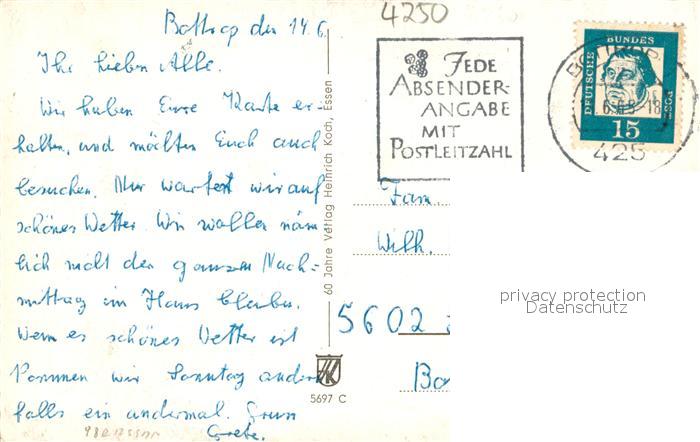 Bottrop den 14.6.
4250
Ihr lieben Alle.
Wir haben Eure Karte er-
halten, und möchten Euch auch
besuchen. Nur warten wir auf
schönes Wetter. Wir wollen näm
lich nicht den ganzen Nach=
mittag im Haus bleiben.
Wenn es schönes Wetter ist
kommen wir Sonntag andern
falls ein andermal. Gruss
Grete.
60 Jahre Verlag Heinrich Koch, Essen
5697 C
JEDE
ABSENDER-
ANGABE
MIT
POSTLEITZAHL
DEUTSCHE BUNDESPOST
15
BOTTROP
425
Fam.
Wilh.
5602
privacy protection
Datenschutz